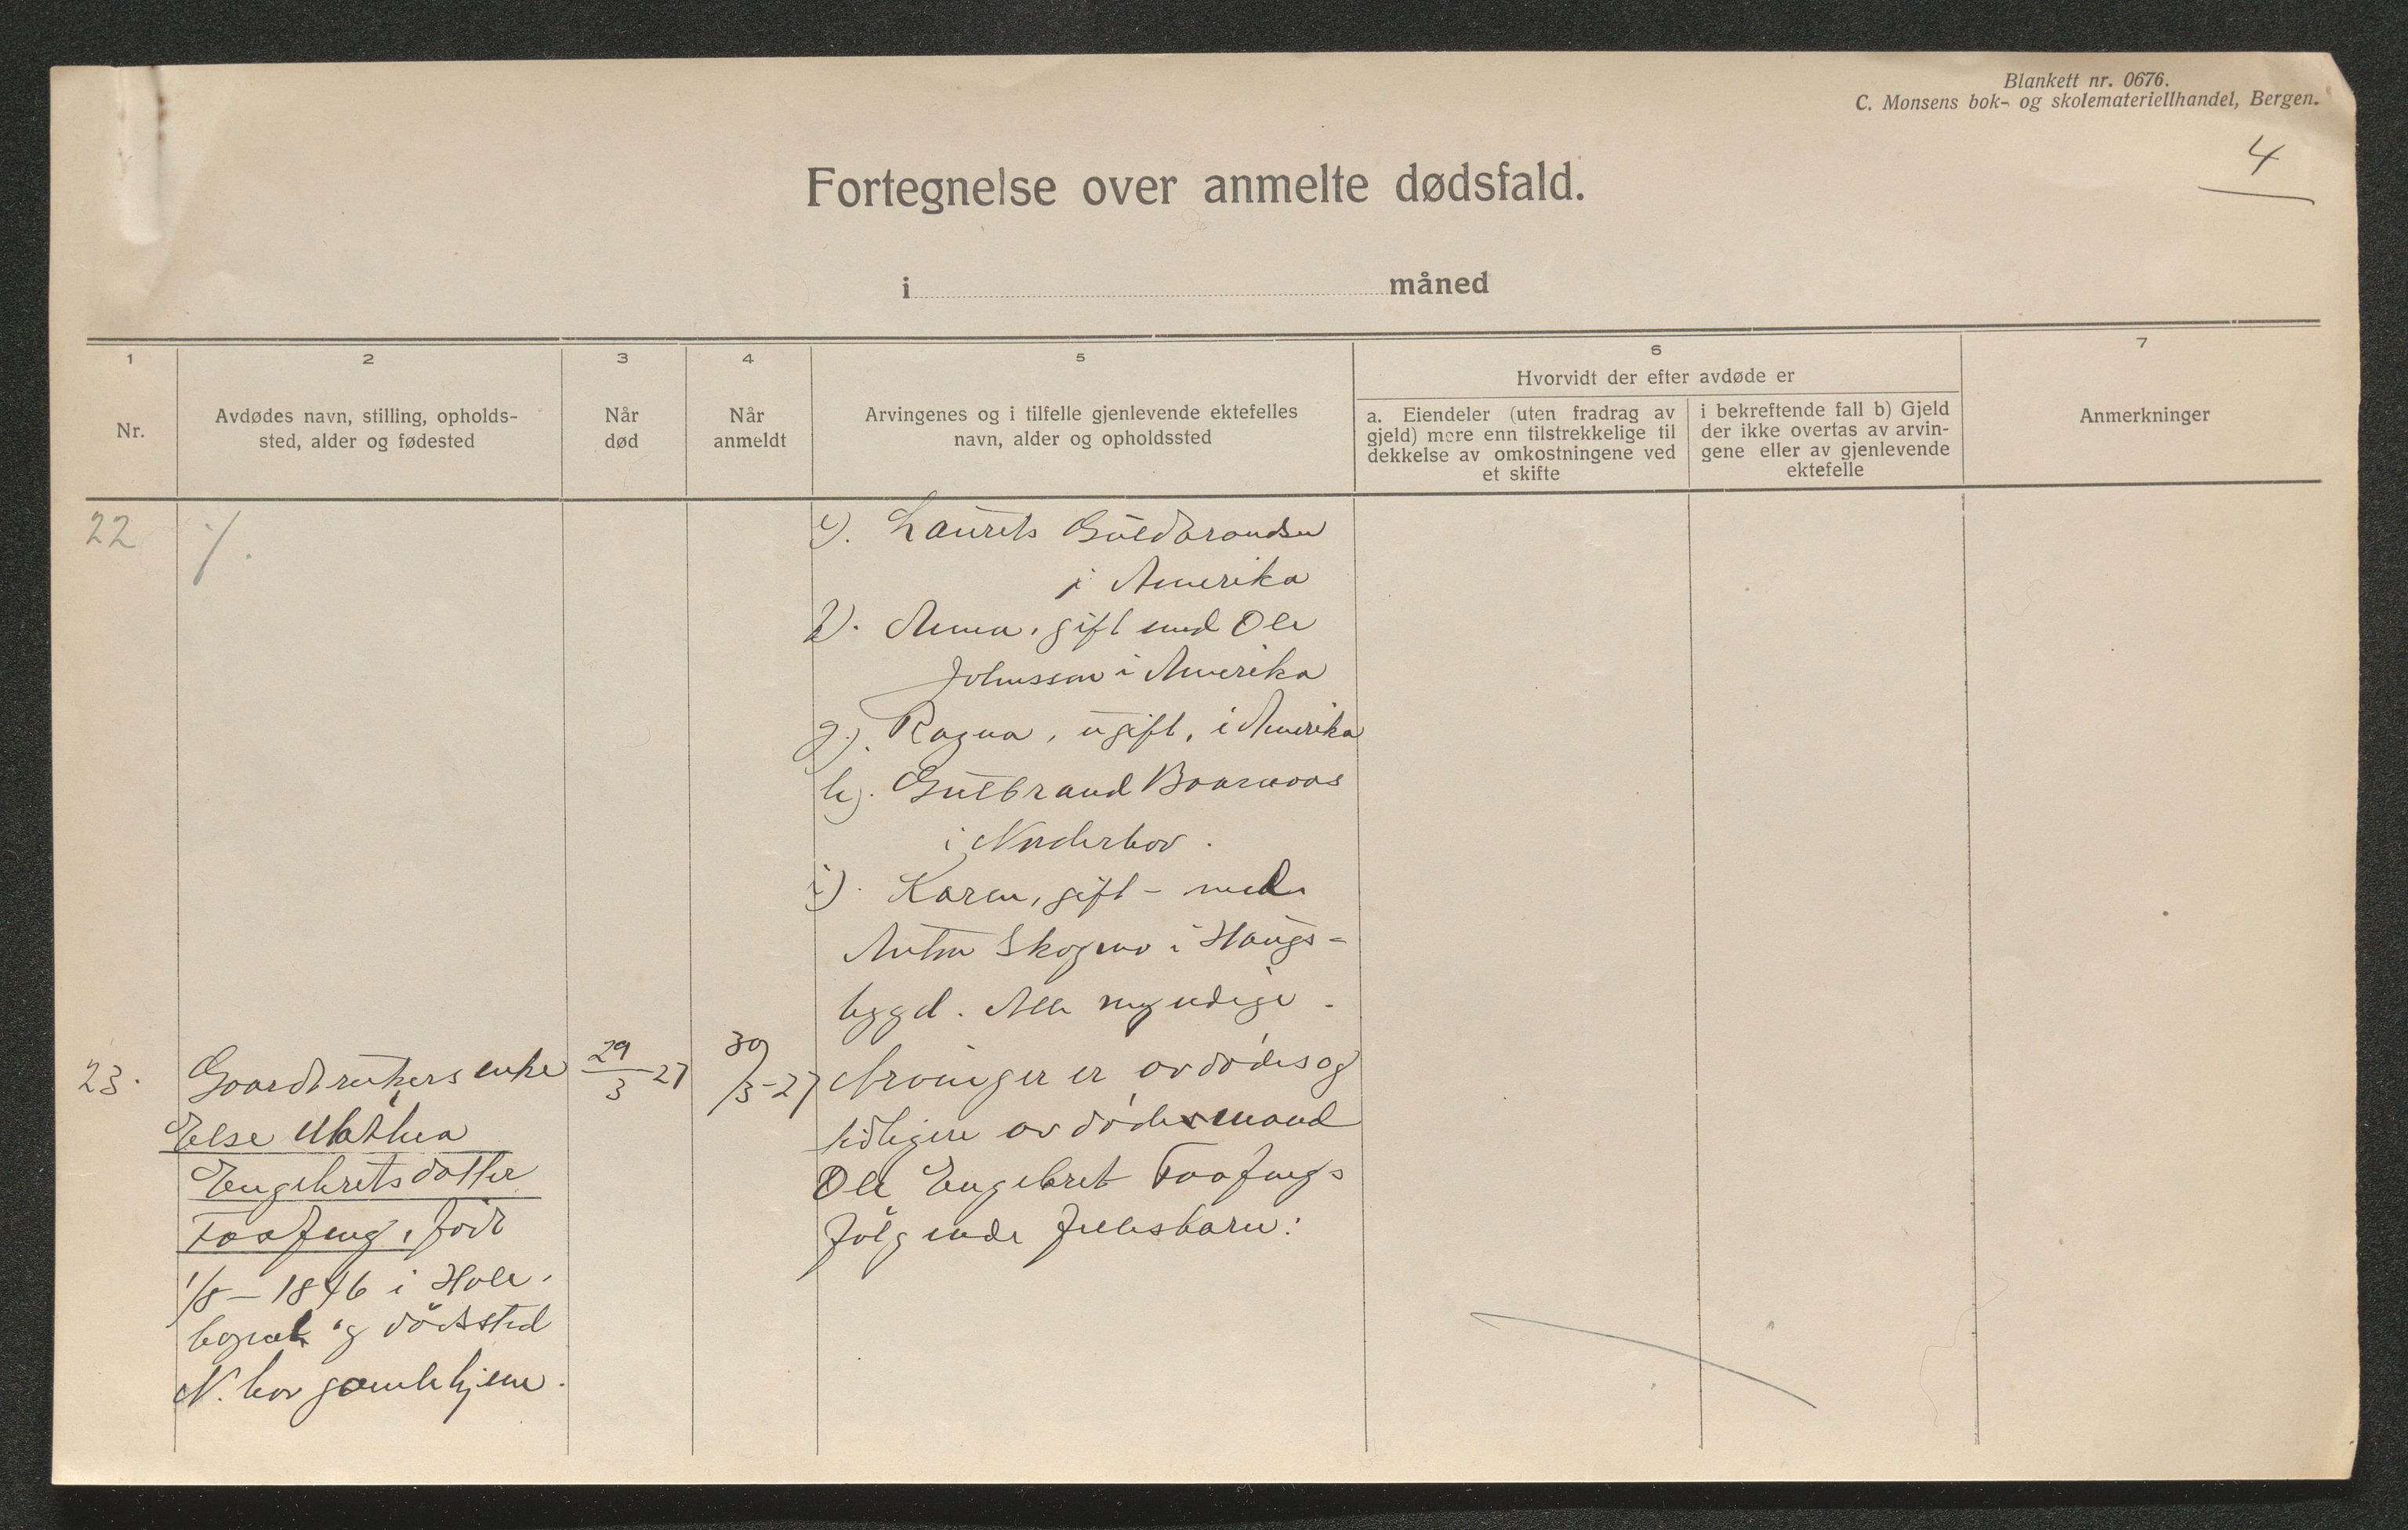 Blankett nr. 0676.
C. Monsens bok- og skolemateriellhandel, Bergen.
4
Fortegnelse over anmelte dødsfald.
i måned
1
2
3
4
5
6
7
Nr.
Avdødes navn, stilling, opholds-
sted, alder og fødested
Når
død
Når
anmeldt
Arvingenes og i tilfelle gjenlevende ektefelles
navn, alder og opholdssted
Hvorvidt der efter avdøde er
a. Eiendeler (uten fradrag av
gjeld) mere enn tilstrekkelige til
dekkelse av omkostningene ved
et skifte
i bekreftende fall b) Gjeld
der ikke overtas av arvin-
gene eller av gjenlevende
ektefelle
Anmerkninger
22
e). Laurits Guldbrandsen
i Amerika
Anna, gift med Ole
Johnsson i Amerika
g). Ragna, ugift, i Amerika
h). Gulbrand Baarnaas
i Norderhov.
i). Karen, gift - med
Anton Skogmo i Haugs-
bygd. Alle myndige.
23.
Gaardbrukerenke
Else Mathea
Engebretsdatter
Taafeng, född
1/8 - 1846 i Hole,
bopæl og dödssted
N.hov gamlehjem.
29/3-27
30/3-27
Arvinger er avdödes og
tidligere avdöde mand
Ole Engebret Taafengs
fölgende fellesbarn: